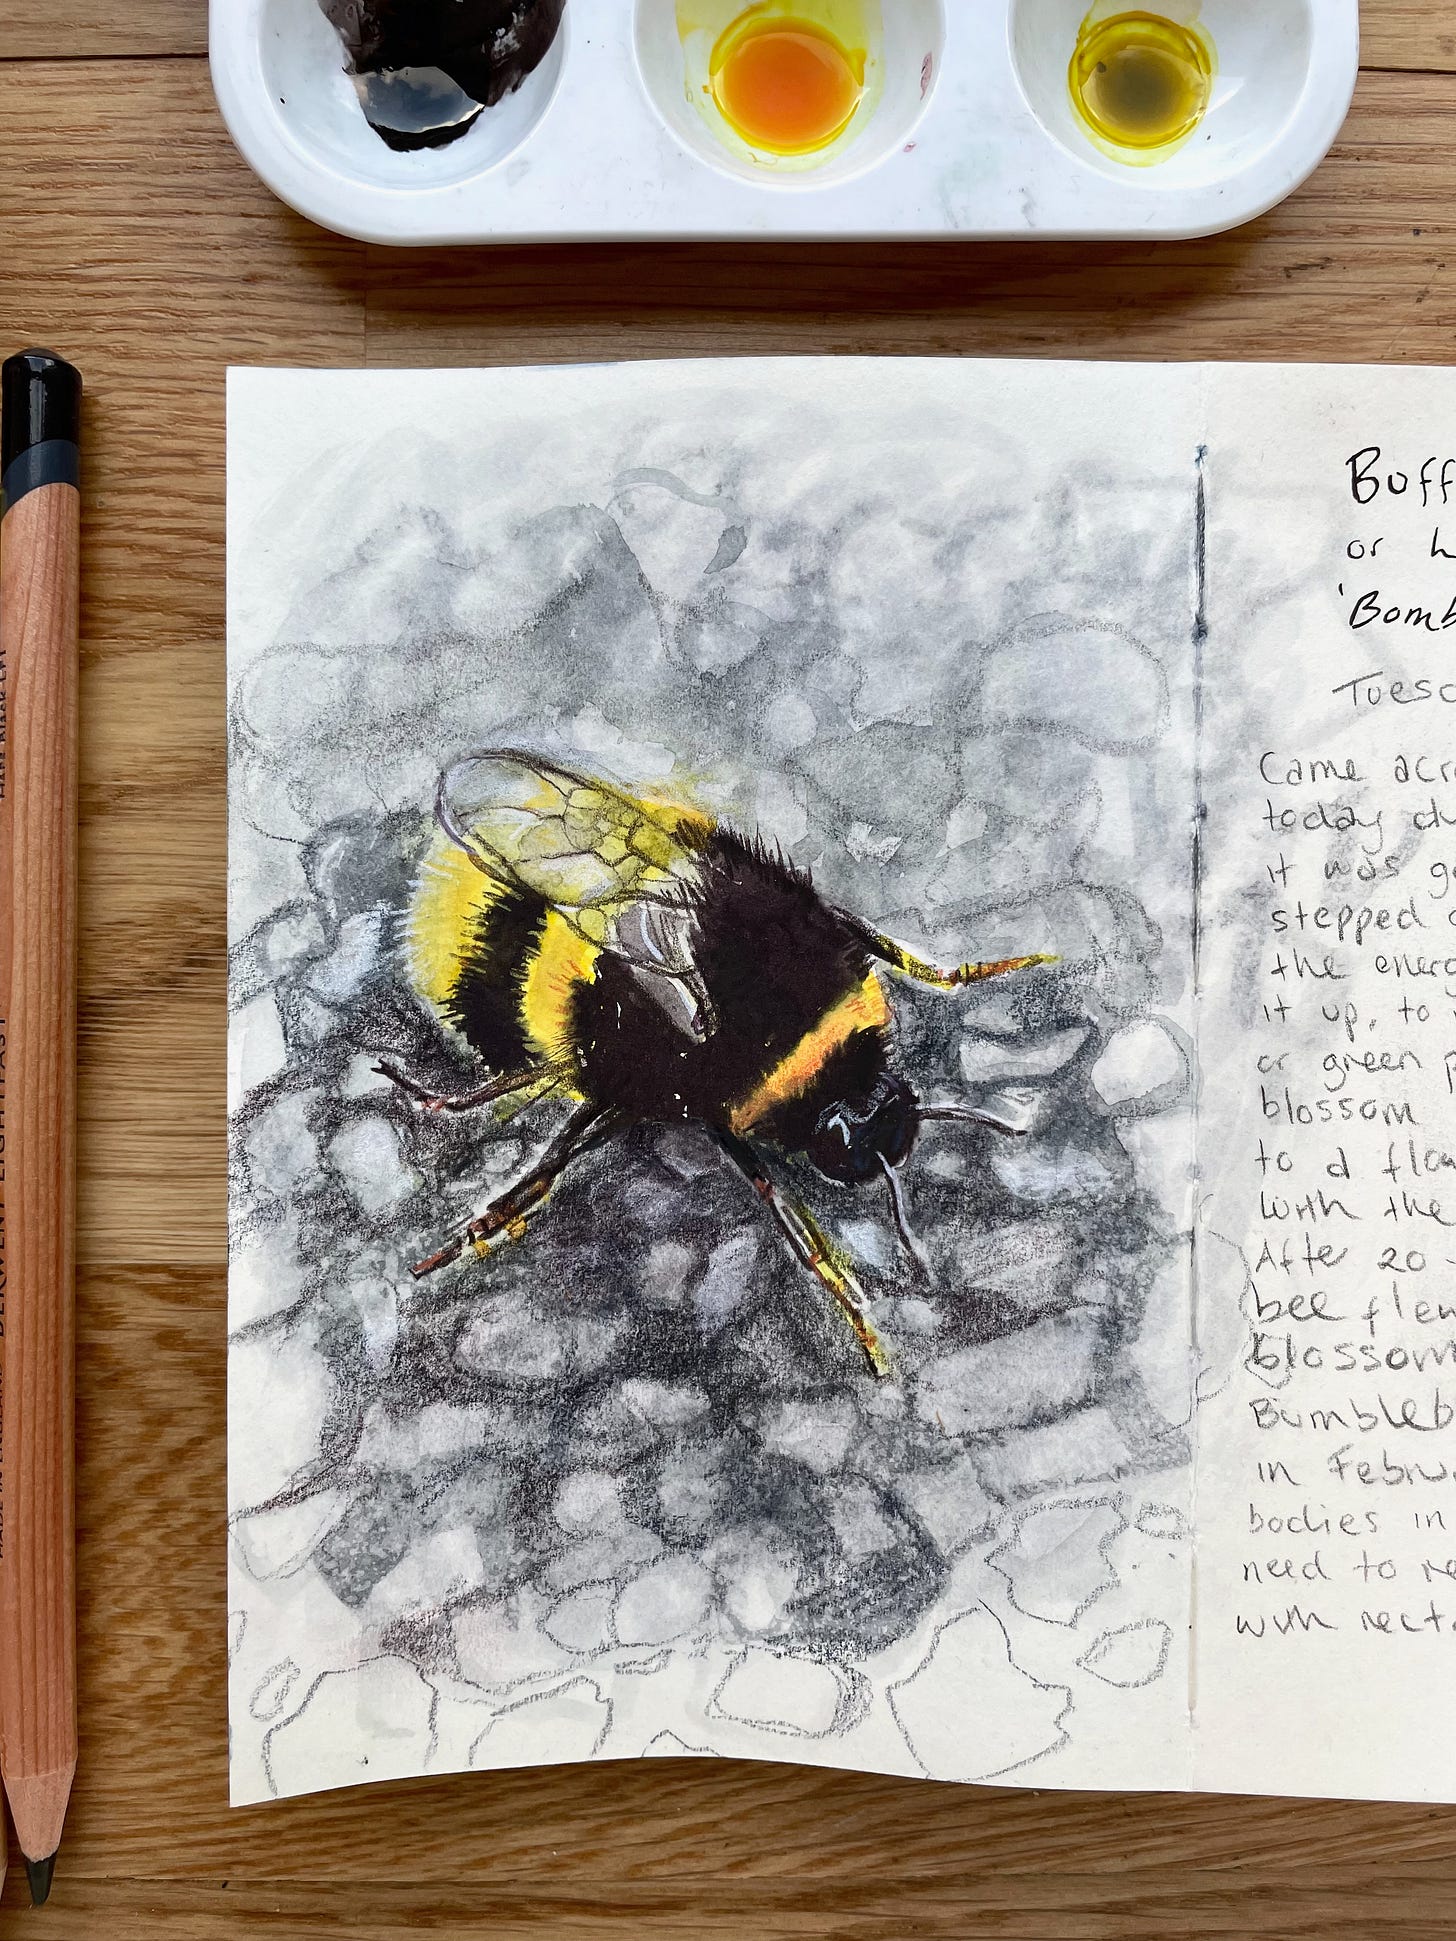 Buff
or h
'Bomb
Tuesd
Came acr
today du
it was g
stepped
the energ
it up, to
or green p
blossom
to a flow
with the
After 20
bee flew
blossom
Bumbleb
in Febru
bodies in
need to re
with nect
DERWENT LIGHTFAST
MADE IN ENGLAND